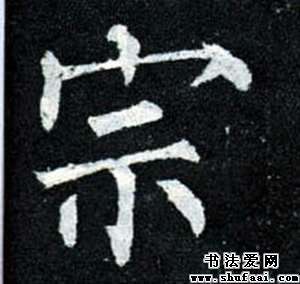 宗
书法爱网
www.shufaai.com